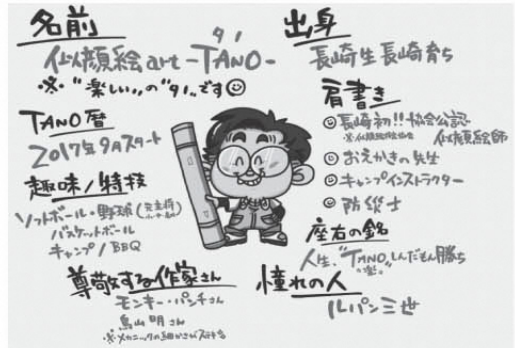 名前
タノ
似顔絵art -TANO-
※"楽しい"の"タノ"です
TANO暦
2017年9月スタート
趣味/特技
ソフトボール・野球
バスケットボール
キャンプ/BBQ
尊敬する作家さん
モンキー・パンチさん
鳥山明さん
※メカニックの細かさがステキ
出身
長崎生長崎育ち
肩書き
長崎初!!協会公認
似顔絵師
おえかきの先生
キャンプインストラクター
防災士
座右の銘
人生、"TANOしんだもん勝ち"
憧れの人
ルパン三世